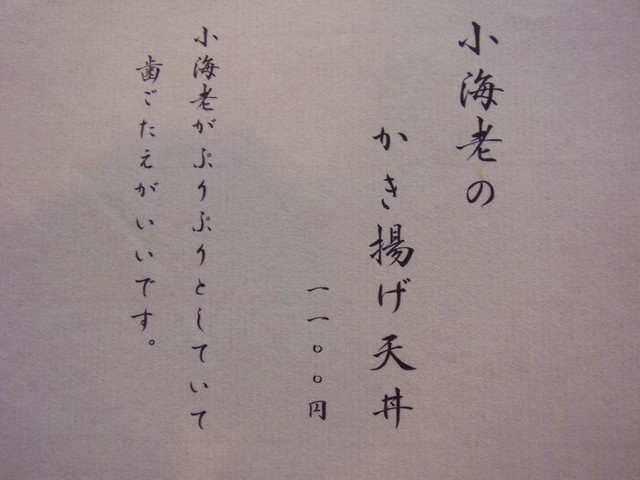 小海老の
かき揚げ天丼
一一〇〇円
小海老がぷりぷりとしていて
歯ごたえがいいです。